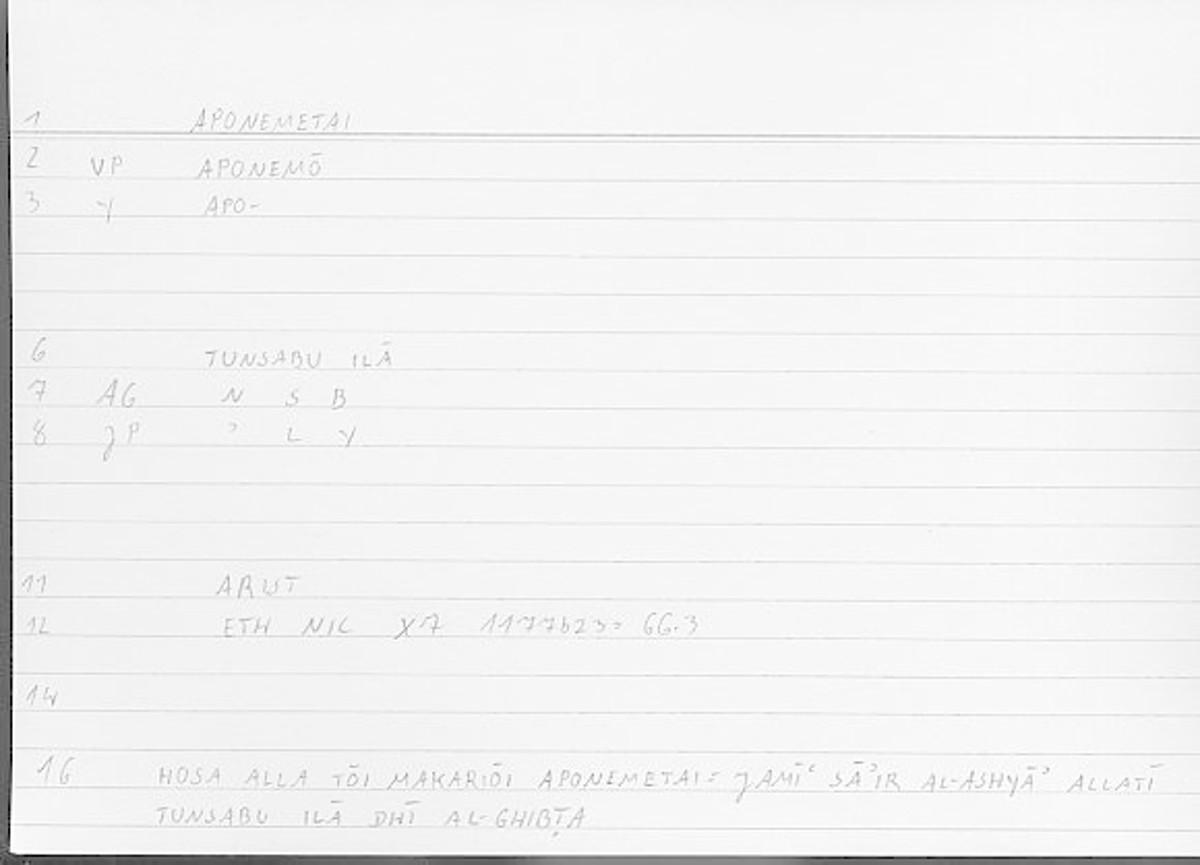 1 APONEMETAI
2 VP APONEMŌ
3 γ APO-
6 TUNSABU ILĀ
7 AG N S B
8 JP ʾ L Y
11 ARUT
12 ETH NIC X7 1177b23= 66.3
14
16 HOSA ALLA TŌI MAKARIŌI APONEMETAI = JAMĪʿ SĀʾIR AL-ASHYĀʾ ALLATĪ
TUNSABU ILĀ DHĪ AL-GHIBṬA